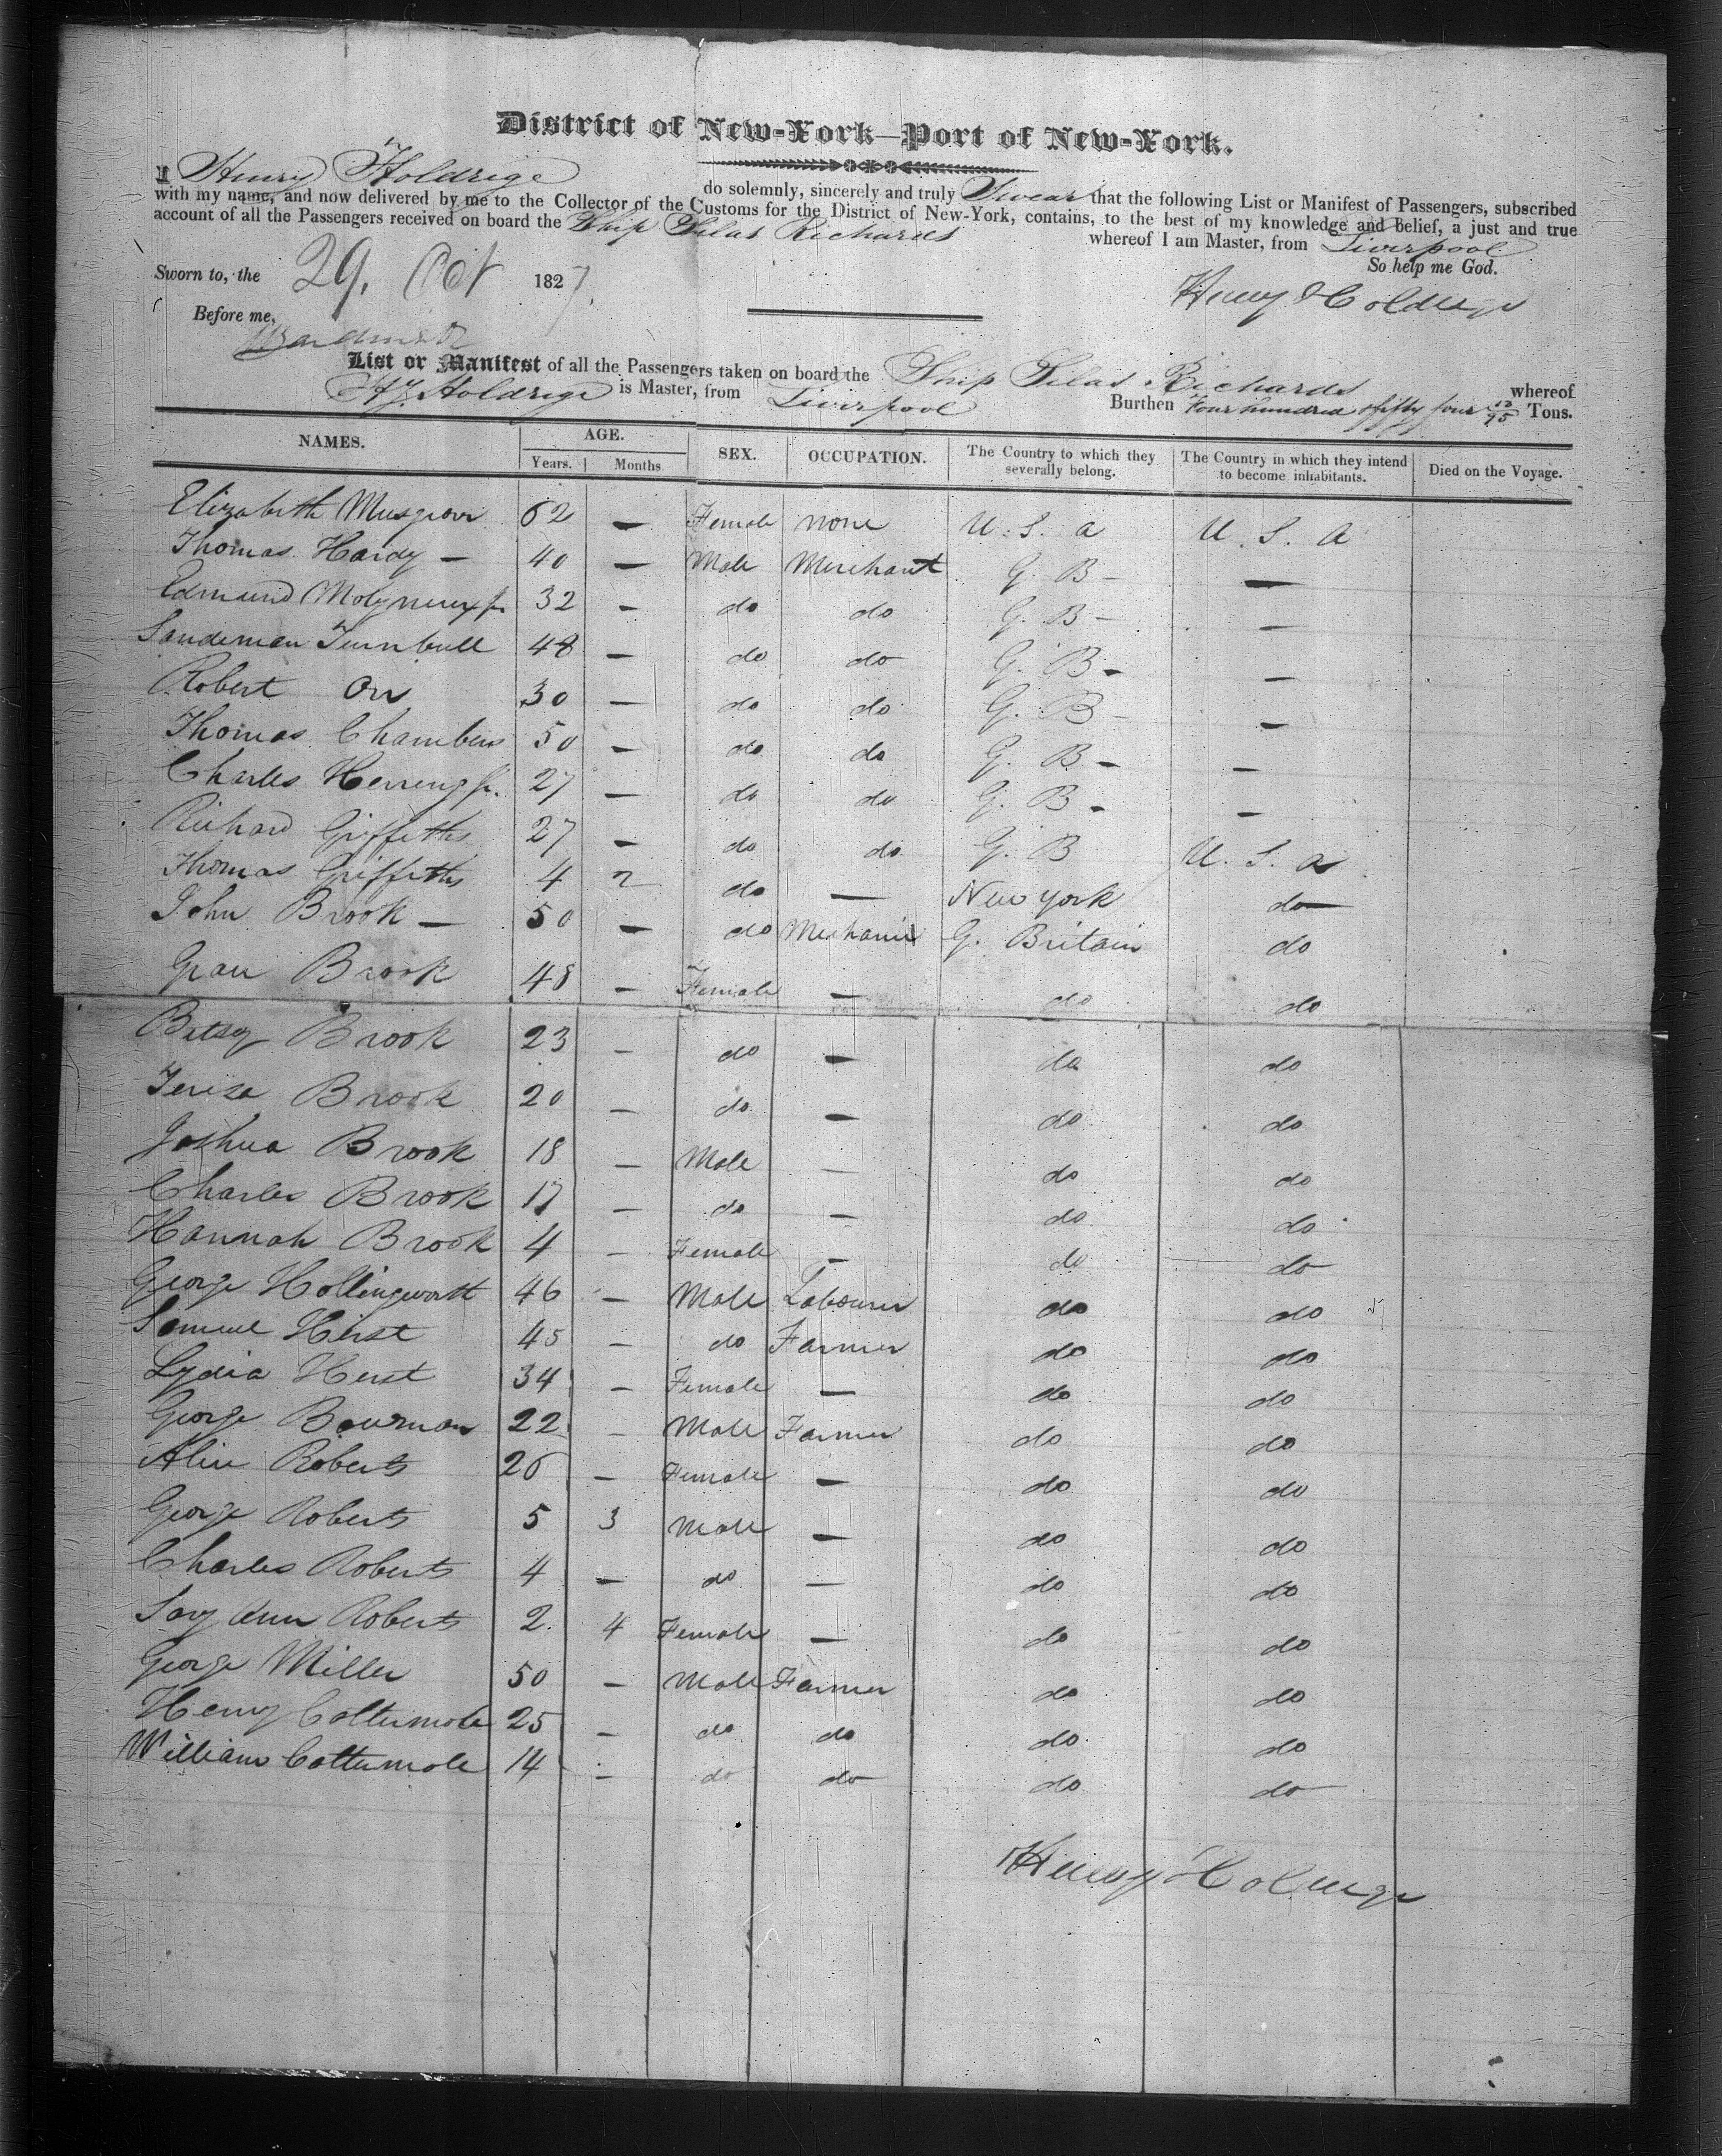 District of New-York—Port of New-York.
I Henry Holdrege do solemnly, sincerely and truly Swear that the following List or Manifest of Passengers, subscribed
with my name, and now delivered by me to the Collector of the Customs for the District of New-York, contains, to the best of my knowledge and belief, a just and true
account of all the Passengers received on board the Ship Silas Richards whereof I am Master, from Liverpool
So help me God.
Sworn to, the 29. Oct 1827.
Henry Holdrege
Before me,
List or Manifest of all the Passengers taken on board the Ship Silas Richards whereof
Hy. Holdrege is Master, from Liverpool Burthen Four hundred & fifty four 12/95 Tons.
NAMES. AGE. SEX. OCCUPATION. The Country to which they severally belong. The Country in which they intend to become inhabitants. Died on the Voyage.
Years. Months
Elizabeth Musgrove 62 — Female none U. S. a U. S. A
Thomas Hardy — 40 — Male Merchant G. B — —
Edmund Molyneux jr 32 — do do G. B — —
Sandeman Turnbull 48 — do do G. B — —
Robert Orr 30 — do do G. B — —
Thomas Chambers 50 — do do G. B — —
Charles Herring jr. 27 — do do G. B — —
Richard Griffeths 27 — do do G. B U. S. a
Thomas Griffeths 4 2 do — New york do
John Brook — 50 — do Mechanic G. Britain do
Grace Brook 48 — Female — do do
Betsy Brook 23 — do — do do
Tereza Brook 20 — do — do do
Joshua Brook 18 — Male — do do
Charles Brook 17 — do — do do
Hannah Brook 4 — Female — do do
George Hollingworth 46 — Male Labourer do do
Samuel Hirst 45 — do Farmer do do
Lydia Hirst 34 — Female — do do
George Bowman 22 — Male Farmer do do
Alice Roberts 26 — Female — do do
George Roberts 5 3 Male — do do
Charles Roberts 4 — do — do do
Sary Ann Roberts 2. 4 Female — do do
George Miller 50 — Male Farmer do do
Henry Cattermole 25 — do do do do
William Cattermole 14 — do do do do
Henry Holdrege